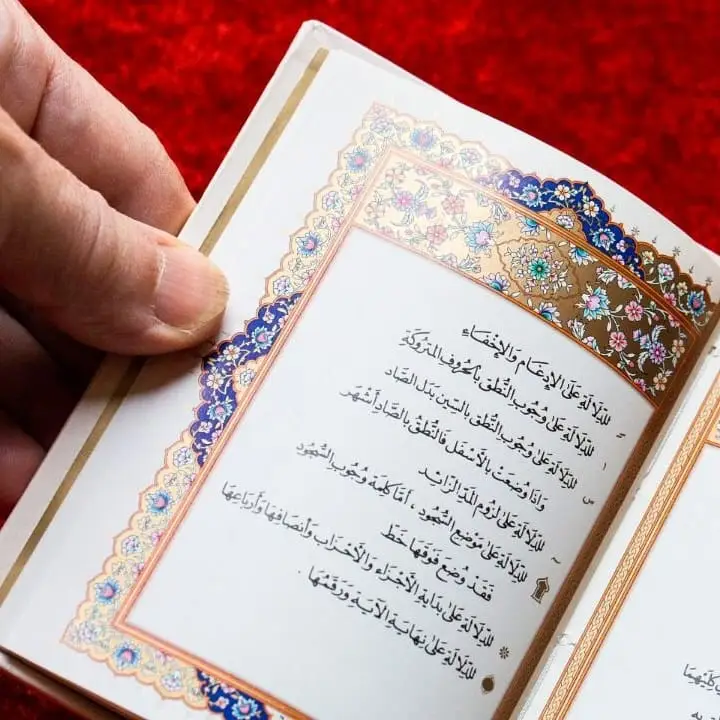 لِلدِّلَالَةِ عَلَىٰ الإِدْغَامِ وَالإِخْفَاءِ
لِلدِّلَالَةِ عَلَىٰ وُجُوبِ النُّطْقِ بِالْحُرُوفِ الْمَتْرُوكَةِ
س لِلدِّلَالَةِ عَلَىٰ وُجُوبِ النُّطْقِ بِالسِّينِ بَدَلَ الصَّادِ
وَإِذَا وُضِعَتْ بِالأَسْفَلِ فَالنُّطْقُ بِالصَّادِ أَشْهَرُ
لِلدِّلَالَةِ عَلَىٰ لُزُومِ الْمَدِّ الزَّائِدِ
لِلدِّلَالَةِ عَلَىٰ مَوْضِعِ السُّجُودِ ، أَمَّا كَلِمَةُ وُجُوبِ السُّجُودِ
فَقَدْ وُضِعَ فَوْقَهَا خَطٌّ
لِلدِّلَالَةِ عَلَىٰ بِدَايَةِ الأَجْزَاءِ وَالأَحْزَابِ وَأَنْصَافِهَا وَأَرْبَاعِهَا
لِلدِّلَالَةِ عَلَىٰ نِهَايَةِ الآيَةِ وَرَقْمِهَا .